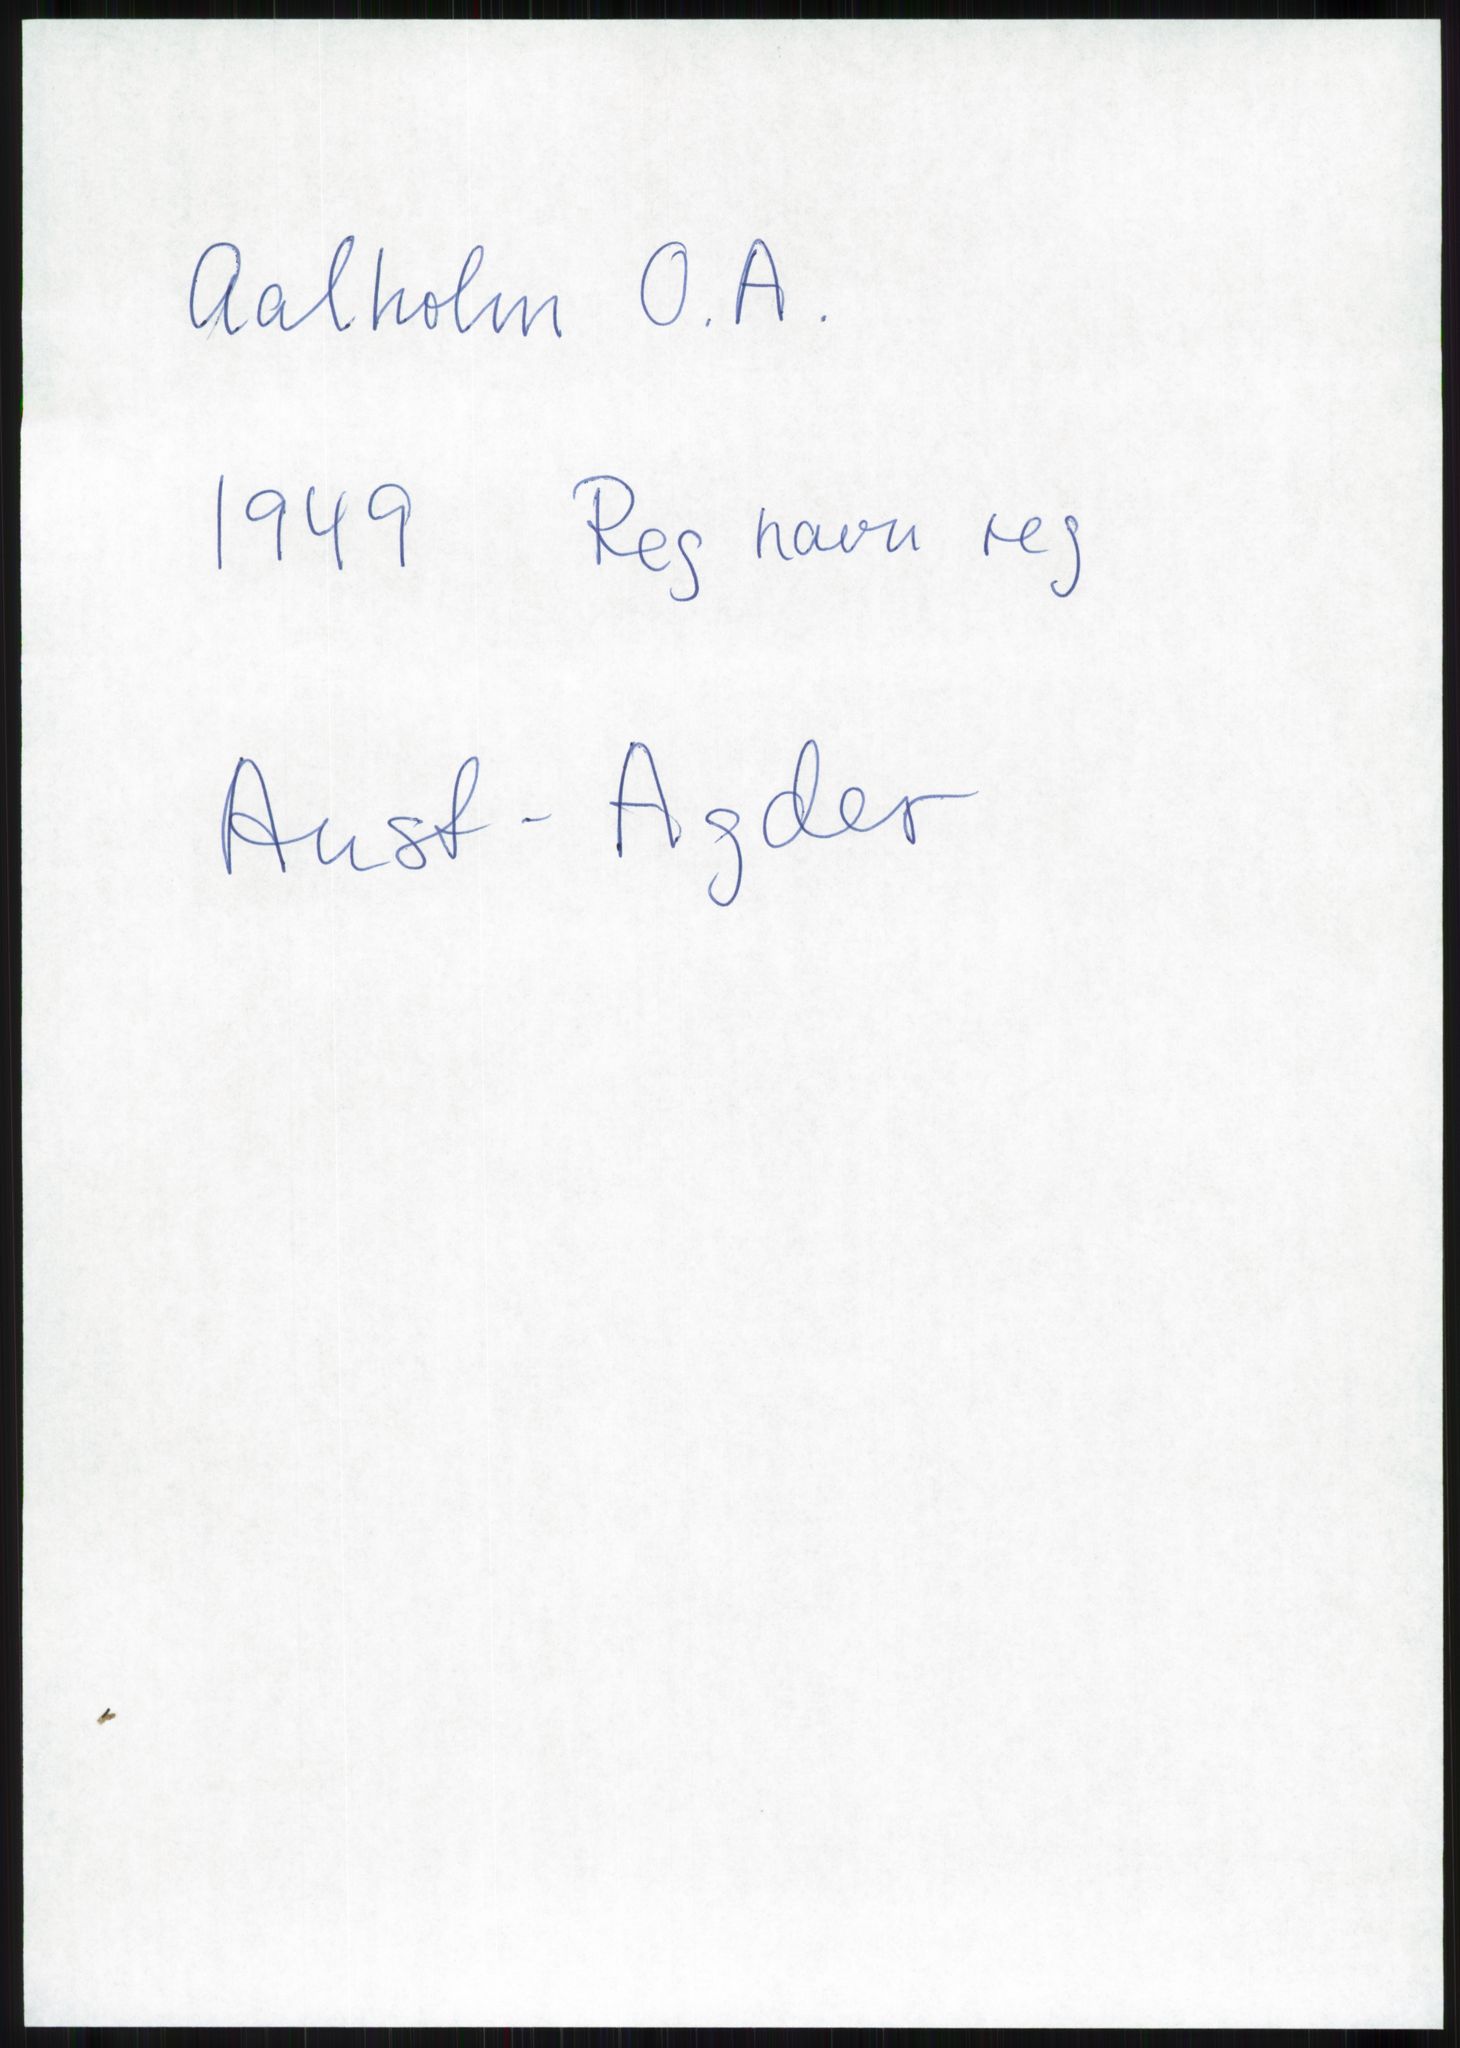 Aalholm O.A.
1949 Reg navn reg
Aust-Agder